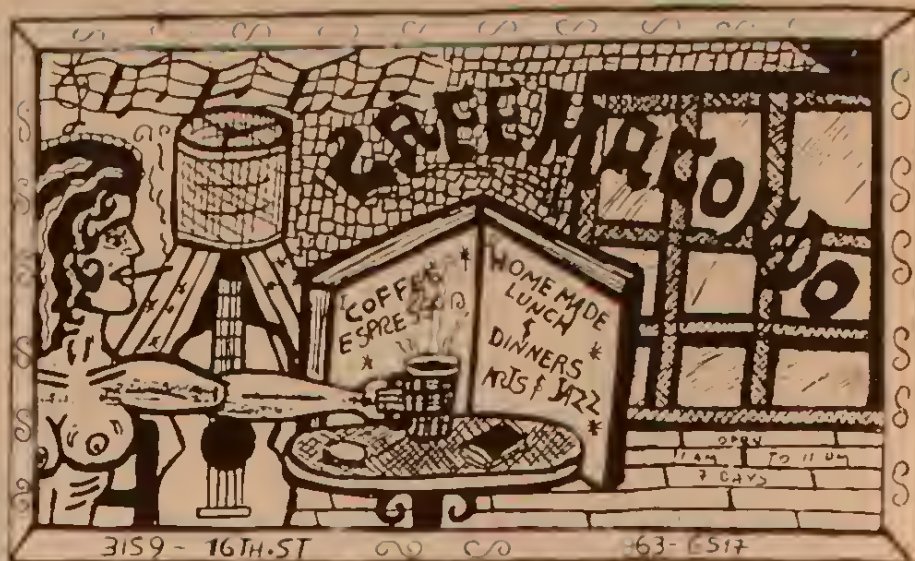 CAFE MACONDO
COFFEE
ESPRESSO
HOME MADE
LUNCH
&
DINNERS
ARTS & JAZZ
OPEN
AM TO 11 PM
7 DAYS
3159 - 16TH. ST